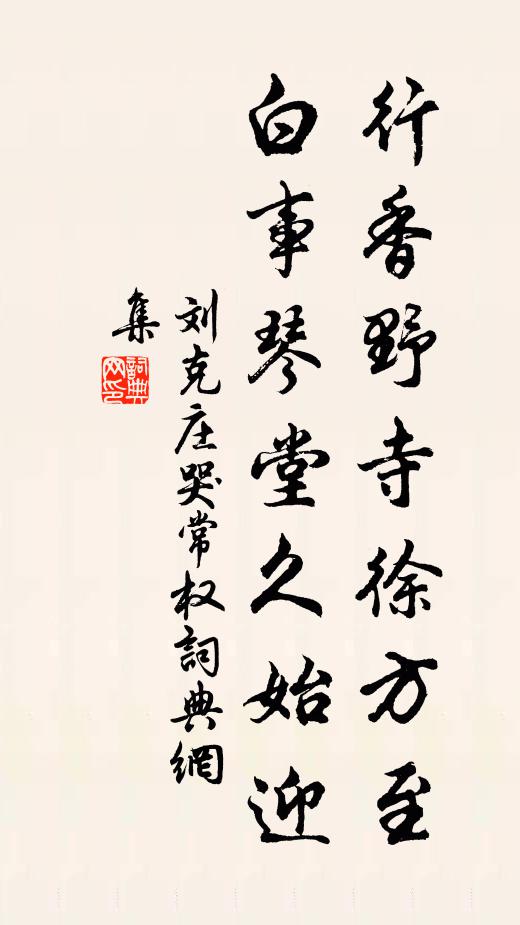 行香野寺徐方至
白事琴堂久始迎
刘克庄哭常权詞典網
集
詞典网印